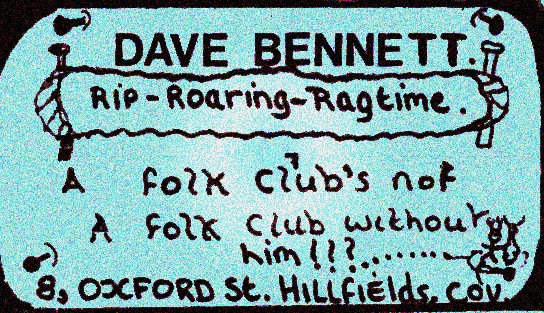 DAVE BENNETT.
Rip-Roaring-Ragtime.
A folk Club's not
A folk Club without
him!!!........
8, OXFORD St. Hillfields, Cov.